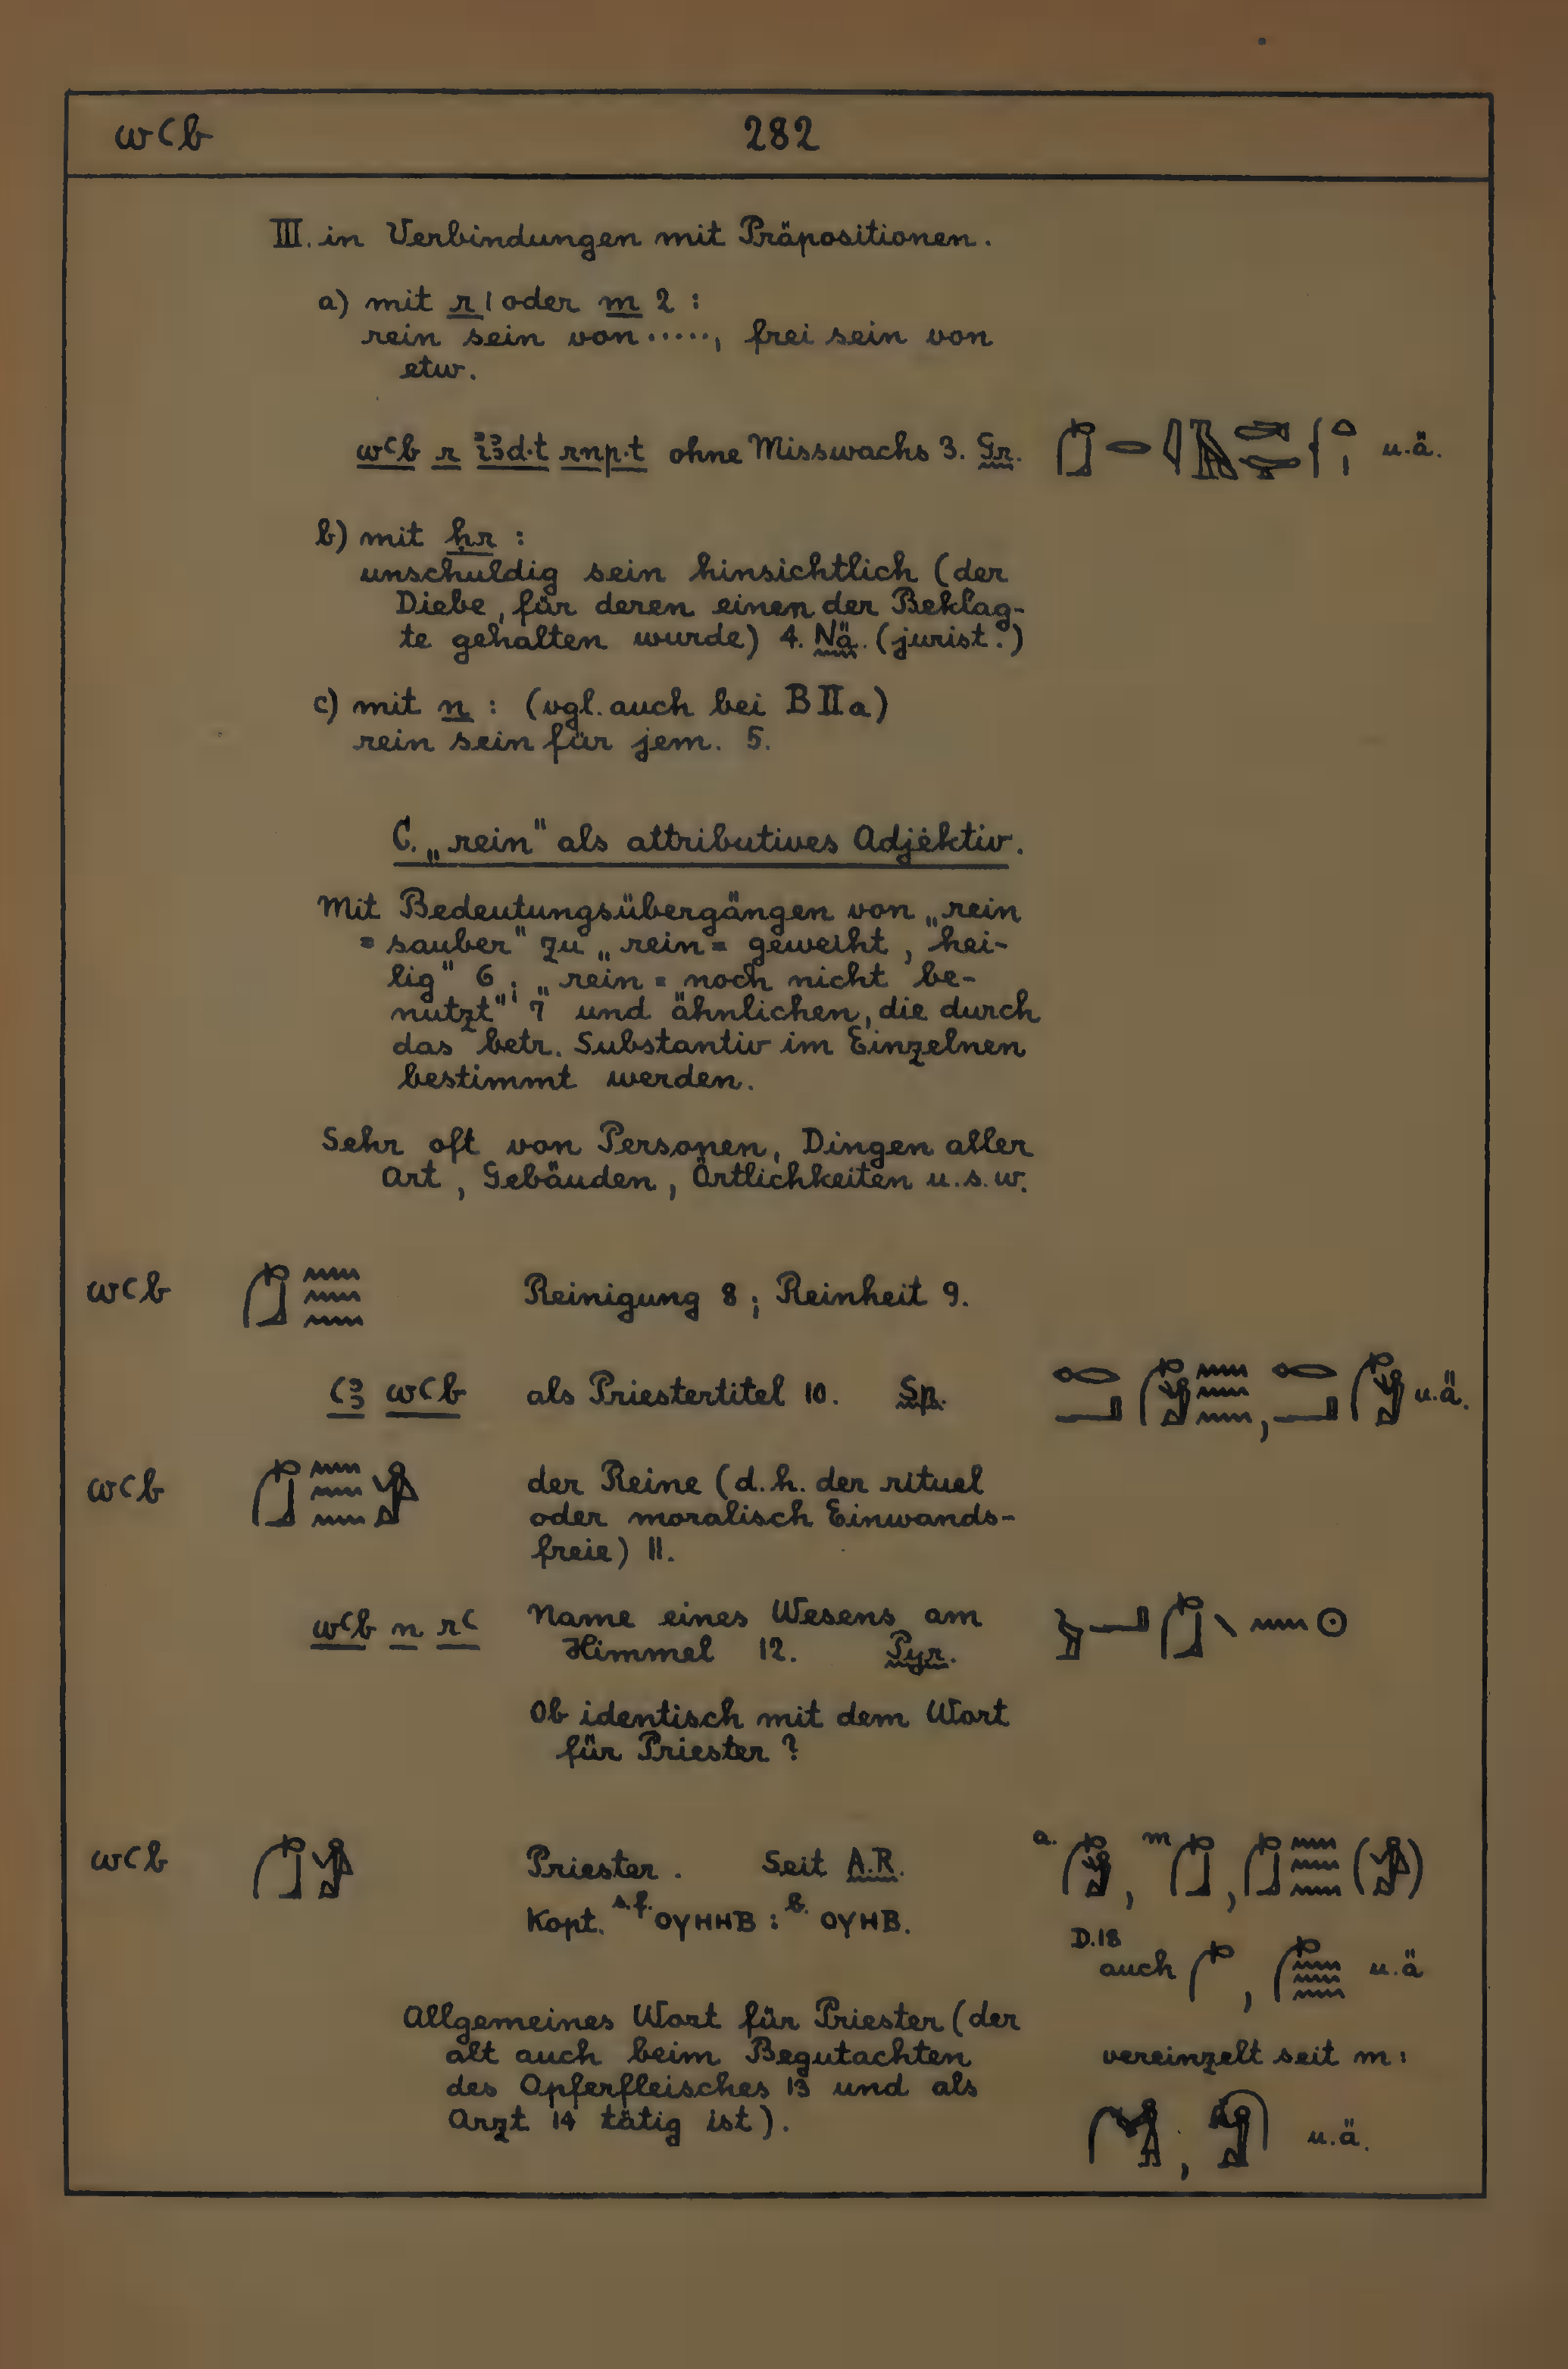 wꜥb 282
III. in Verbindungen mit Präpositionen.
a) mit r 1 oder m 2 :
rein sein von ....., frei sein von
etw.
wꜥb r i҆ꜣd·t rnp·t ohne Misswachs 3. Gr. u.ä.
b) mit ḥr :
unschuldig sein hinsichtlich (der
Diebe, für deren einen der Beklag-
te gehalten wurde) 4. Nä. (jurist.)
c) mit n : (vgl. auch bei B II a)
rein sein für jem. 5.
C. „rein" als attributives Adjektiv.
Mit Bedeutungsübergängen von „rein
= sauber" zu „rein = geweiht, hei-
lig" 6; „rein = noch nicht be-
nutzt" 7 und ähnlichen, die durch
das betr. Substantiv im Einzelnen
bestimmt werden.
Sehr oft von Personen, Dingen aller
Art, Gebäuden, Örtlichkeiten u.s.w.
wꜥb Reinigung 8; Reinheit 9.
ꜥꜣ wꜥb als Priestertitel 10. Sp. u.ä.
wꜥb der Reine (d.h. der rituel
oder moralisch Einwands-
freie) 11.
wꜥb n rꜥ Name eines Wesens am
Himmel 12. Pyr.
Ob identisch mit dem Wort
für Priester?
wꜥb Priester. Seit A.R. a. m
Kopt. s.f. ⲟⲩⲏⲏⲃ : b. ⲟⲩⲏⲃ.
D.18
auch , u.ä
Allgemeines Wort für Priester (der
alt auch beim Begutachten
des Opferfleisches 13 und als
Arzt 14 tätig ist).
vereinzelt seit m:
u.ä.